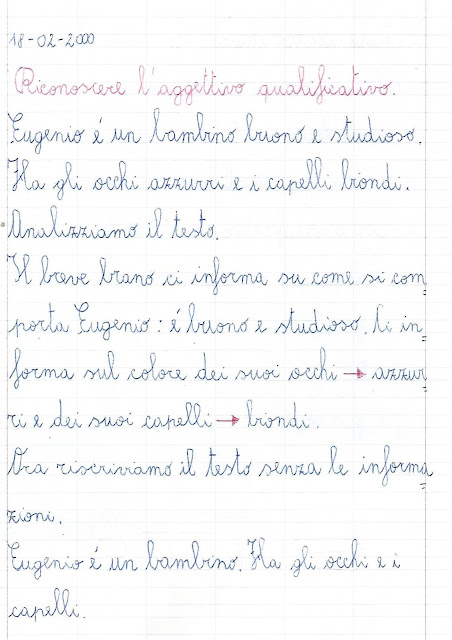 18-02-2000
Riconoscere l'aggettivo qualificativo.
Eugenio é un bambino buono e studioso.
Ha gli occhi azzurri e i capelli biondi.
Analizziamo il testo.
Il breve brano ci informa su come si com=
porta Eugenio: é buono e studioso. Ci in=
forma sul colore dei suoi occhi → azzur=
ri e dei suoi capelli → biondi.
Ora riscriviamo il testo senza le informa=
zioni.
Eugenio é un bambino. Ha gli occhi e i
capelli.